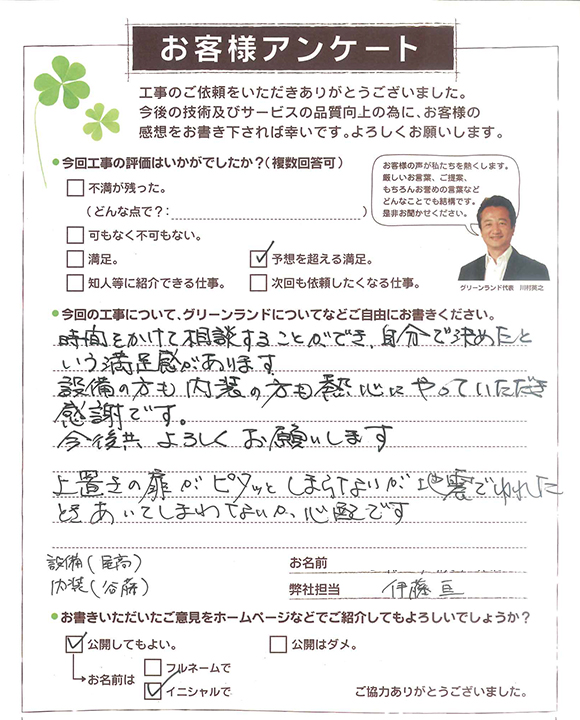 お客様アンケート
工事のご依頼をいただきありがとうございました。
今後の技術及びサービスの品質向上の為に、お客様の
感想をお書き下されば幸いです。よろしくお願いします。
●今回工事の評価はいかがでしたか?(複数回答可)
不満が残った。
(どんな点で?: )
可もなく不可もない。
満足。
予想を超える満足。
知人等に紹介できる仕事。
次回も依頼したくなる仕事。
お客様の声が私たちを熱くします。
厳しいお言葉、ご提案、
もちろんお誉めの言葉など
どんなことでも結構です。
是非お聞かせください。
グリーンランド代表 川村英之
●今回の工事について、グリーンランドについてなどご自由にお書きください。
時間をかけて相談することができ、自分で決めたと
いう満足感があります
設備の方も内装の方も熱心にやっていただき
感謝です。
今後共よろしくお願いします
上置きの扉がピタッとしまらないが地震でゆれた
ときあいてしまわないか、心配です
設備(尾高)
内装(谷藤)
お名前
弊社担当 伊藤 亘
●お書きいただいたご意見をホームページなどでご紹介してもよろしいでしょうか?
公開してもよい。
公開はダメ。
お名前は
フルネームで
イニシャルで
ご協力ありがとうございました。